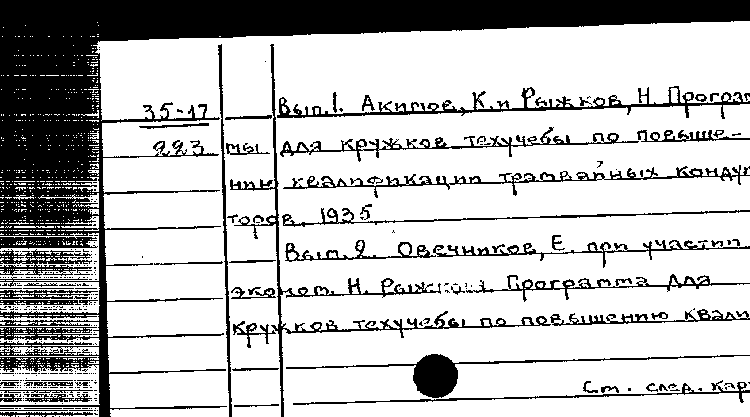 35-17
223
Вып.1. Акимов, К. и Рыжков, Н. Програм
мы для кружков техучебы по повыше-
нию квалификации трамвайных кондук
торов. 1935.
Вып.2. Овечников, Е. при участии
эконом. Н. Рыжкова. Программа для
кружков техучебы по повышению квали
См. след. кар